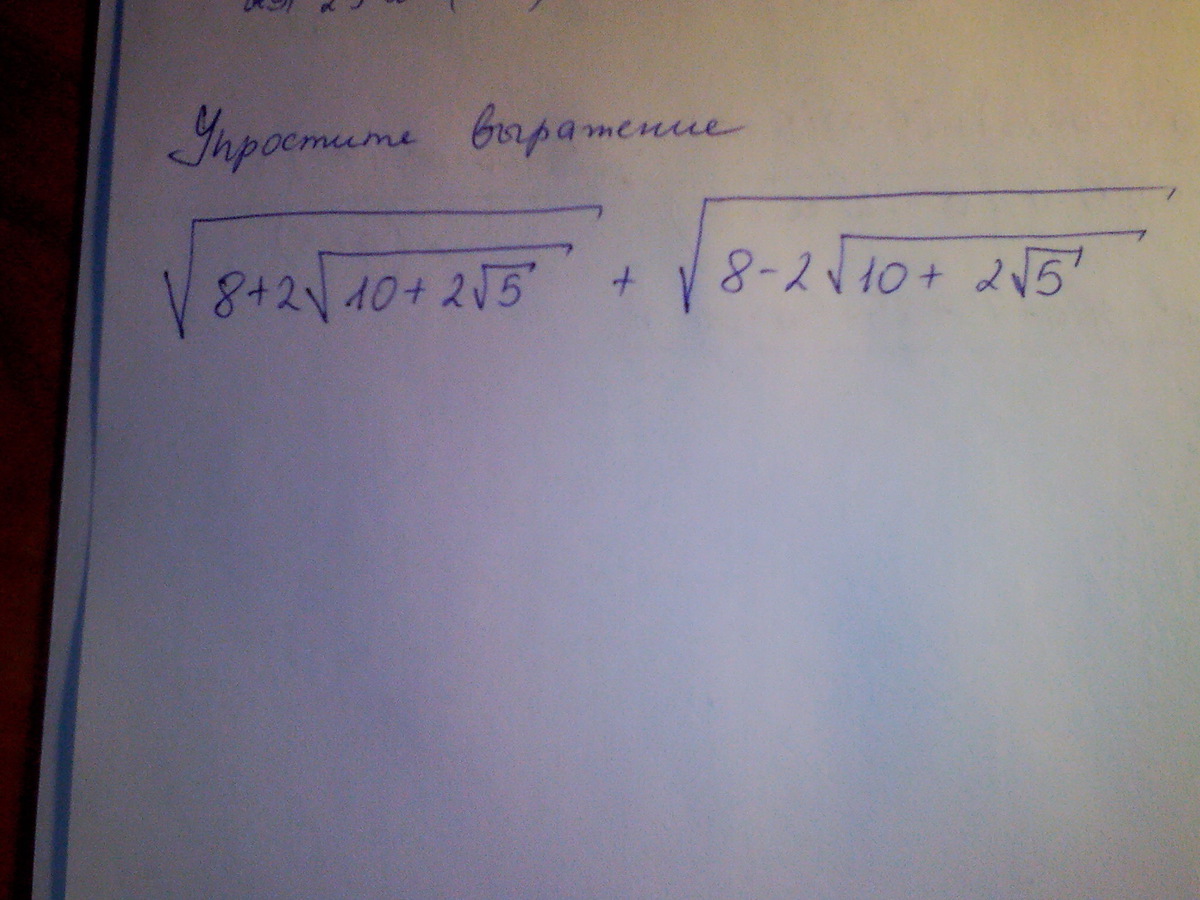 Упростите выражение
√(8+2√(10+2√5)) + √(8-2√(10+2√5))